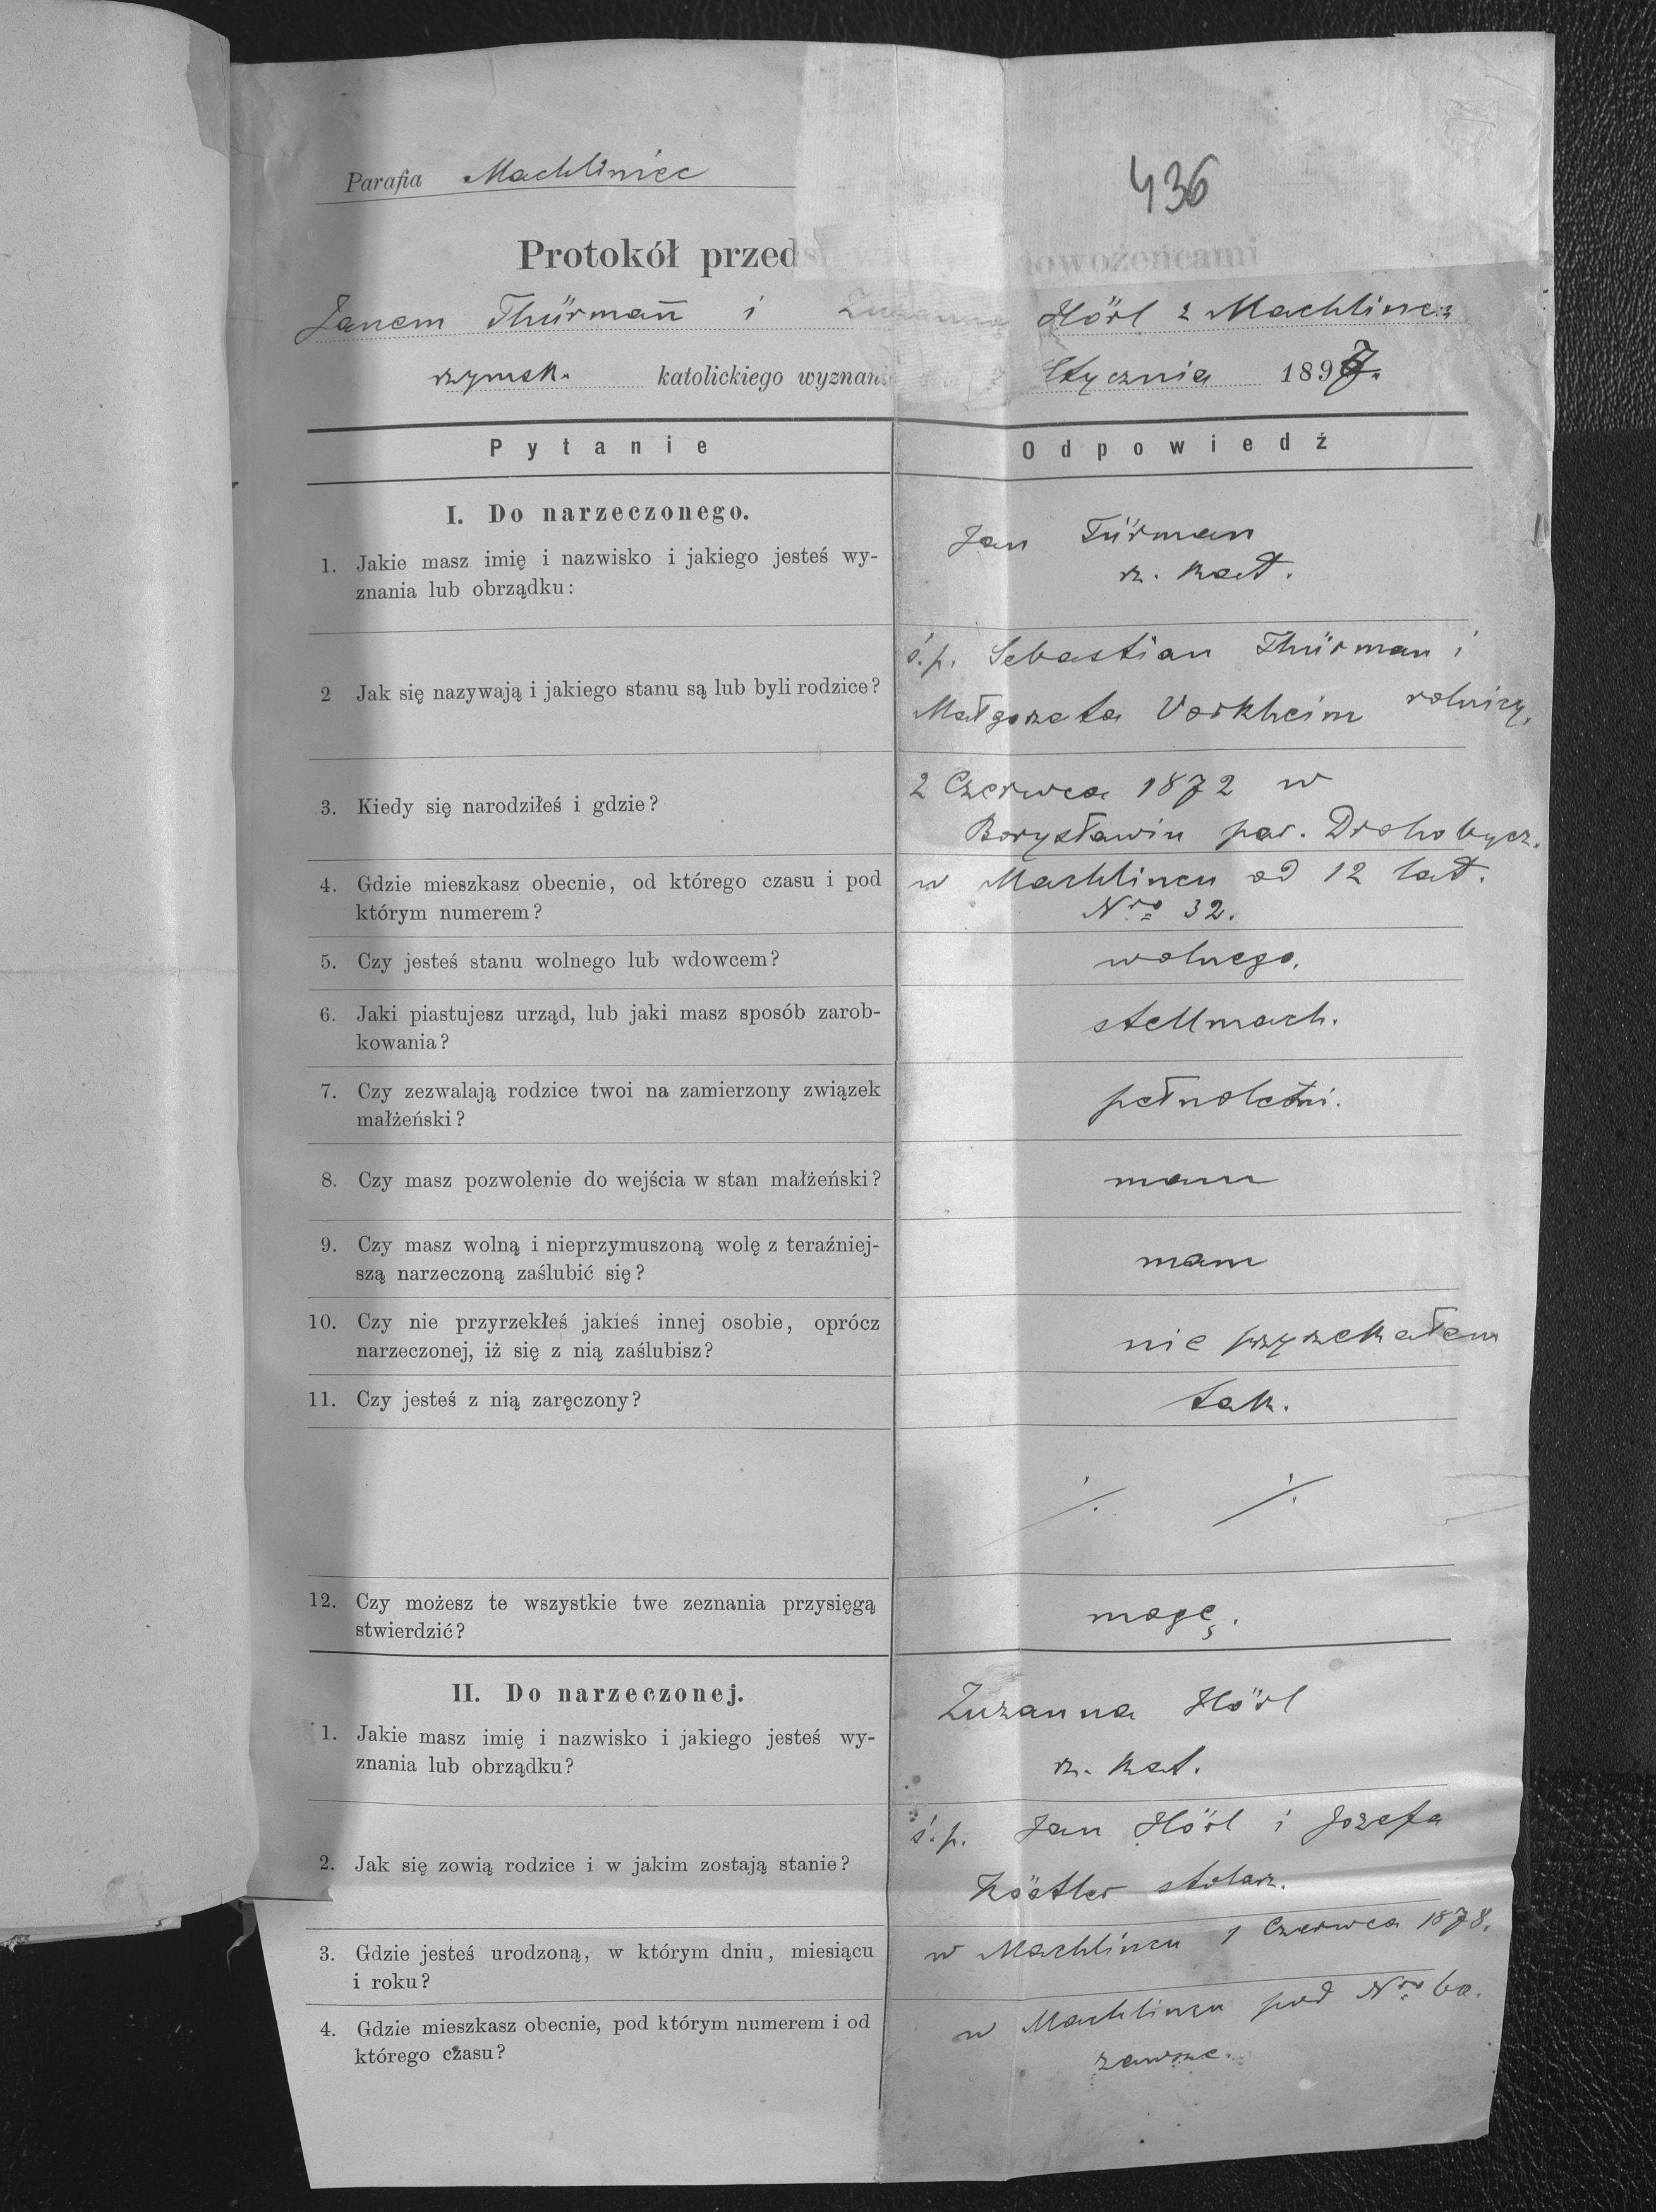 Parafia Machliniec
436
Protokół przedślubny z nowożeńcami
Janem Thürmañ i Zuzanną Hörl z Machlińca
rzymsk. katolickiego wyznania Stycznia 1897.
Pytanie
Odpowiedź
I. Do narzeczonego.
1. Jakie masz imię i nazwisko i jakiego jesteś wy-
znania lub obrządku:
Jan Türman
rz. kat.
2 Jak się nazywają i jakiego stanu są lub byli rodzice?
ś.p. Sebastian Thürman i
Małgorzata Vorkheim rolnicy.
3. Kiedy się narodziłeś i gdzie?
2 Czerwca 1872 w
Borysławiu par. Drohobycz.
4. Gdzie mieszkasz obecnie, od którego czasu i pod
którym numerem?
w Machlińcu od 12 lat.
Nro 32.
5. Czy jesteś stanu wolnego lub wdowcem?
wolnego.
6. Jaki piastujesz urząd, lub jaki masz sposób zarob-
kowania?
stellmach.
7. Czy zezwalają rodzice twoi na zamierzony związek
małżeński?
pełnoletni.
8. Czy masz pozwolenie do wejścia w stan małżeński?
mam
9. Czy masz wolną i nieprzymuszoną wolę z teraźniej-
szą narzeczoną zaślubić się?
mam
10. Czy nie przyrzekłeś jakieś innej osobie, oprócz
narzeczonej, iż się z nią zaślubisz?
nie przyrzekałem
11. Czy jesteś z nią zaręczony?
tak.
./. ./.
12. Czy możesz te wszystkie twe zeznania przysięgą
stwierdzić?
mogę.
II. Do narzeczonej.
1. Jakie masz imię i nazwisko i jakiego jesteś wy-
znania lub obrządku?
Zuzanna Hörl
rz. kat.
2. Jak się zowią rodzice i w jakim zostają stanie?
ś.p. Jan Hörl i Jozefa
Köstler stolarz.
3. Gdzie jesteś urodzoną, w którym dniu, miesiącu
i roku?
w Machlincu 1 Czerwca 1878.
4. Gdzie mieszkasz obecnie, pod którym numerem i od
którego czasu?
w Machlincu pod Nro 60.
zawsze.